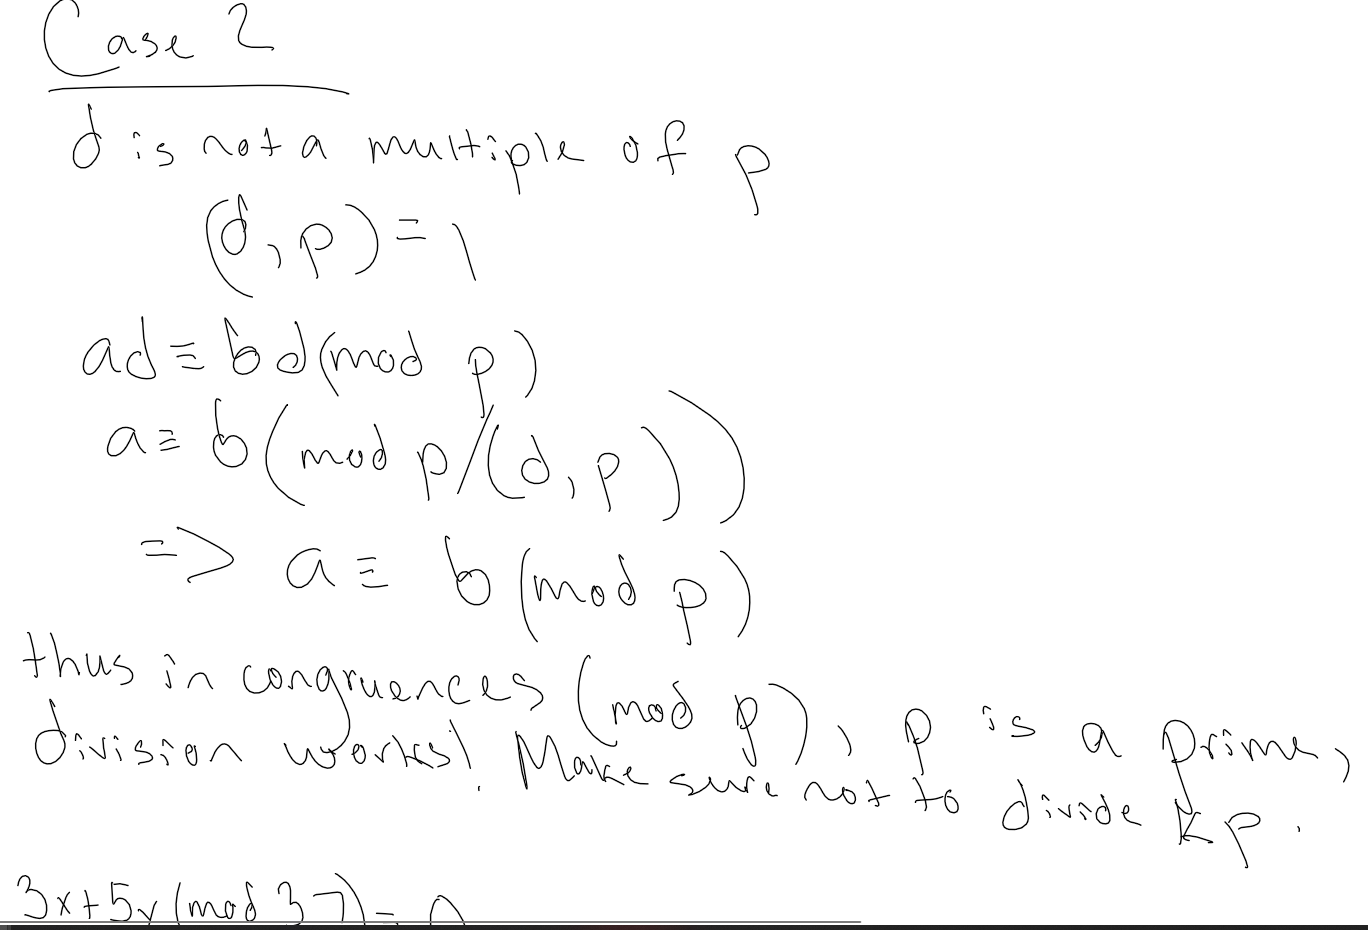 Case 2
d is not a multiple of p
(d, p) = 1
ad ≡ bd (mod p)
a ≡ b (mod p/(d, p))
=> a ≡ b (mod p)
thus in congruences (mod p), p is a prime,
division works! Make sure not to divide kp.
3x+5y (mod 37) = 0